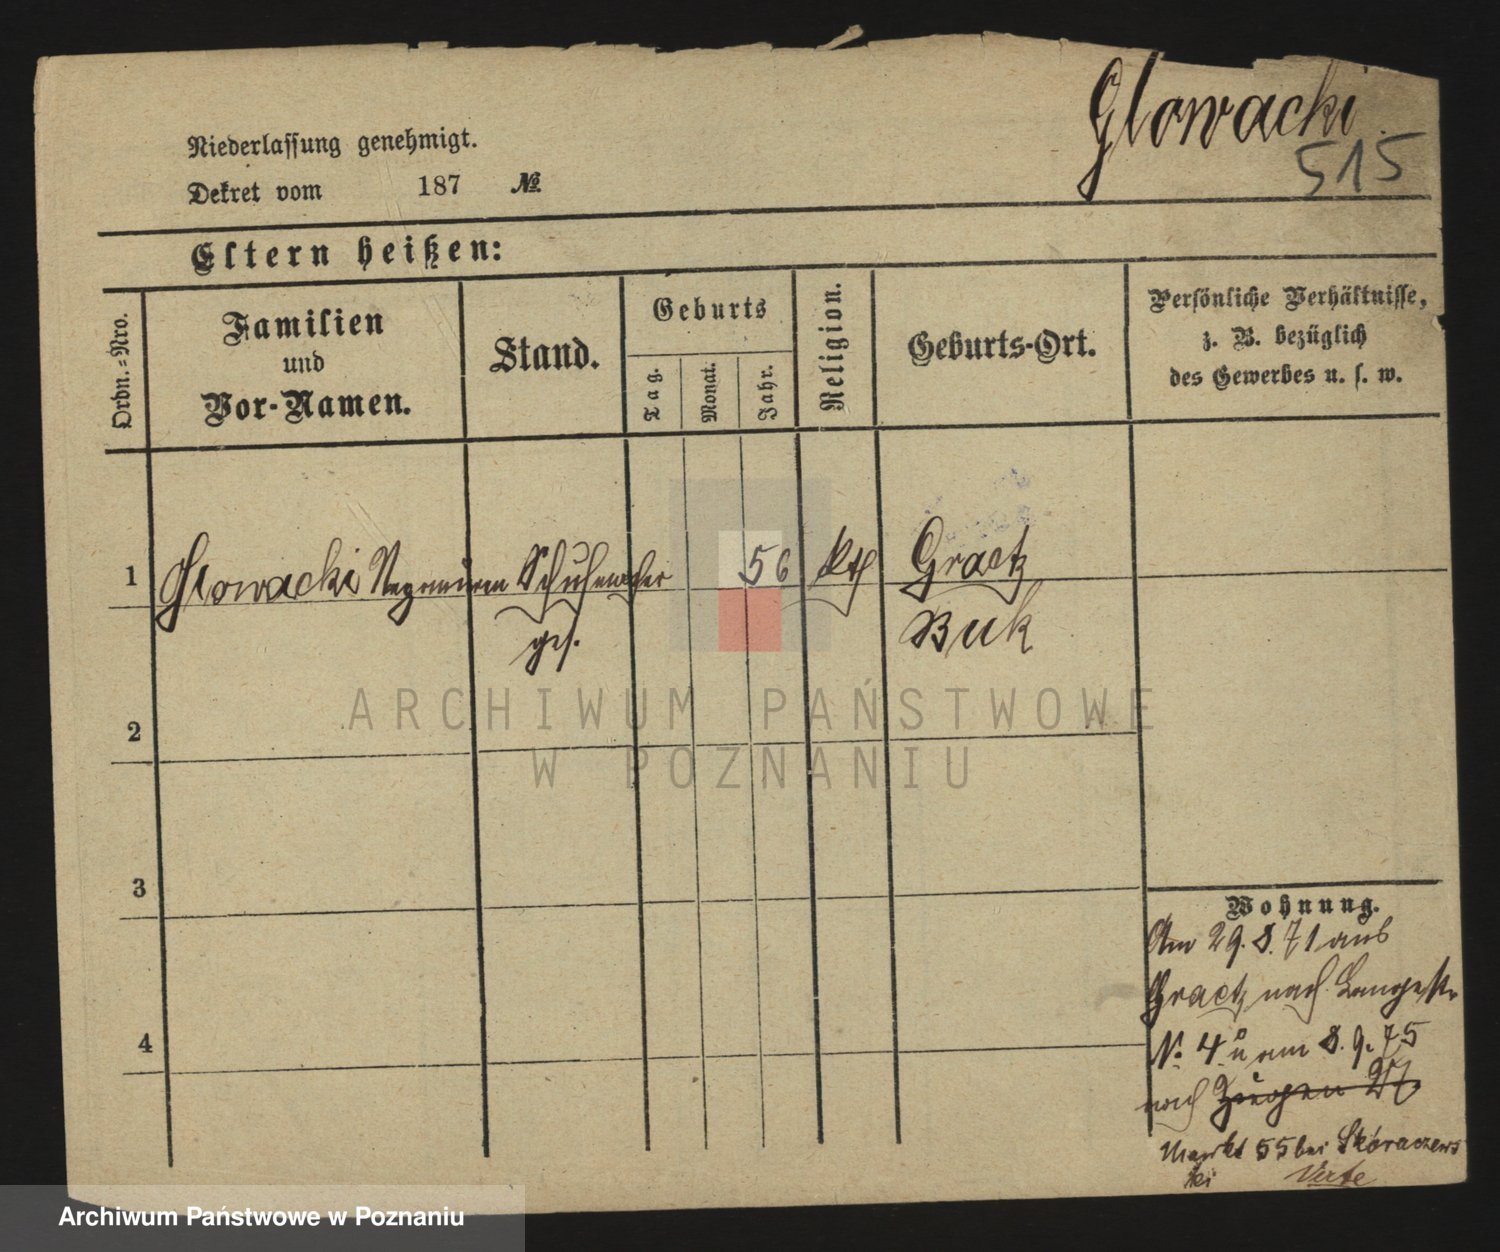 Glowacki
515
Niederlassung genehmigt.
Dekret vom 187 №
Eltern heißen:
Ordn.-Nro.
Familien
und
Vor-Namen.
Stand.
Geburts
Tag.
Monat.
Jahr.
Religion.
Geburts-Ort.
Persönliche Verhältnisse,
z. B. bezüglich
des Gewerbes u. s. w.
1 Glowacki Schuhmacher 56 kth Graetz
ges. Buk
2
3
4
Wohnung.
Am 29.8.71 aus
Graetz nach Langestr
N. 4 u am 8.9.75
nach
Markt 55 bei Skoraczews
ki Verte
ARCHIWUM PAŃSTWOWE
W POZNANIU
Archiwum Państwowe w Poznaniu